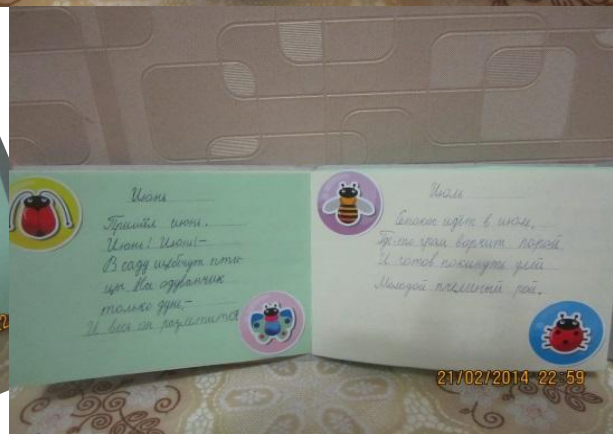 Июнь
Пришёл июнь.
Июнь! Июнь!-
В саду щебечут пти-
цы. На одуванчик
только дунь,-
И весь он разлетится
Июль
Сенокос идёт в июле,
Где-то гром ворчит порой
И готов покинуть улей
Молодой пчелиный рой.
21/02/2014 22:59